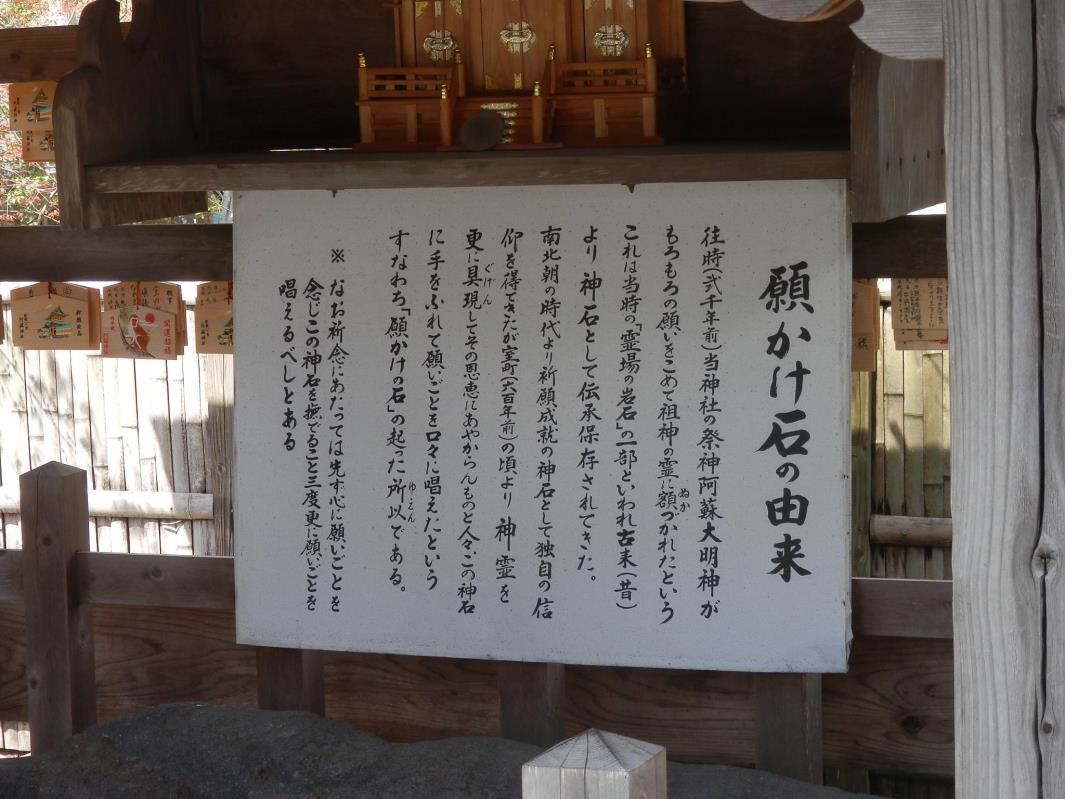 願かけ石の由来
往時(弐千年前)当神社の祭神阿蘇大明神が
もろもろの願いをこめて祖神の霊に額づかれたという
ぬか
これは当時の「霊場の岩石」の一部といわれ古来(昔)
より神石として伝承保存されてきた。
南北朝の時代より祈願成就の神石として独自の信
仰を得てきたが室町(六百年前)の頃より神霊を
更に具現してその恩恵にあやからんものと人々この神石
ぐげん
に手をふれて願いごとを口々に唱えたという
すなわち「願かけの石」の起った所以である。
ゆえん
※ なお祈念にあたっては先ず心に願いごとを
念じこの神石を撫でること三度更に願いごとを
唱えるべしとある